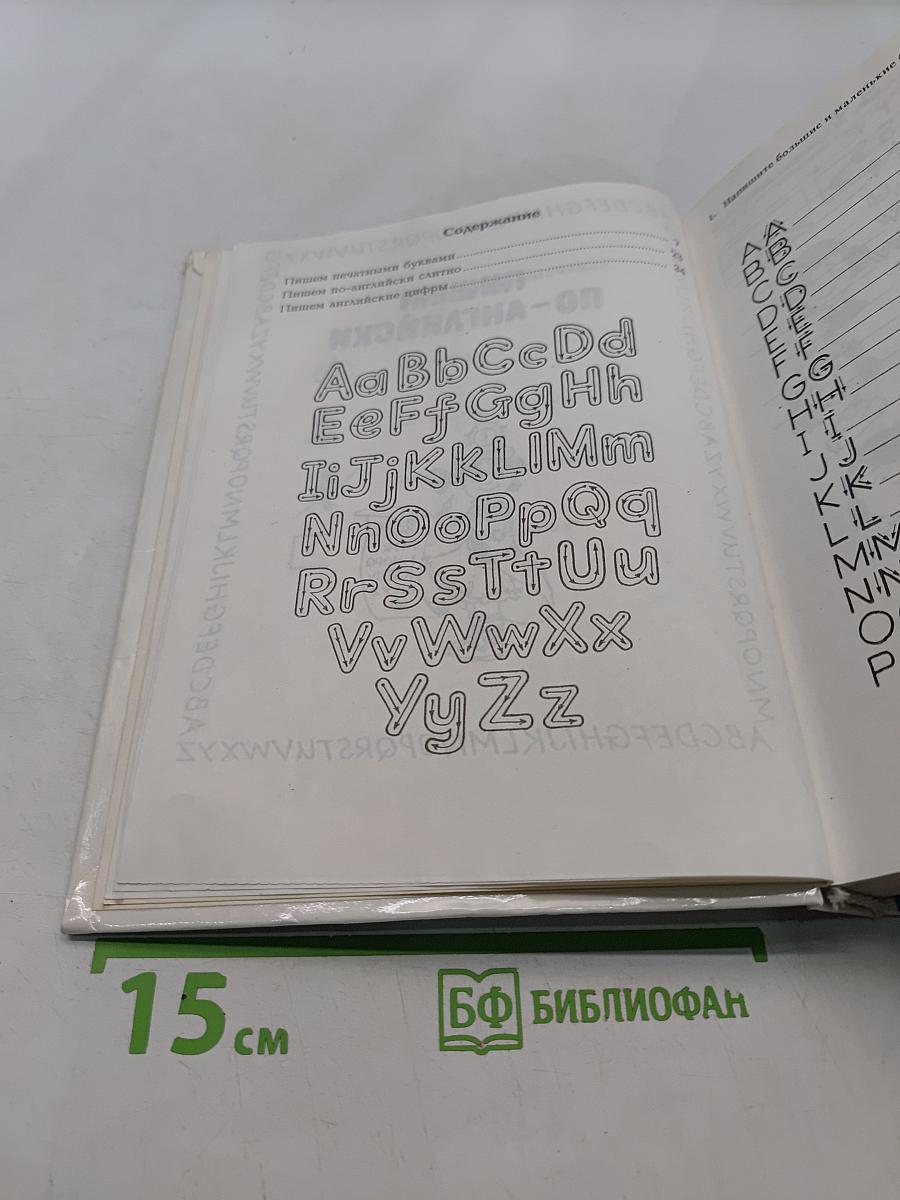 Содержание
Пишем печатными буквами
Пишем по-английски слитно 23
Пишем английские цифры 24
Aa Bb Cc Dd
Ee Ff Gg Hh
Ii Jj Kk Ll Mm
Nn Oo Pp Qq
Rr Ss Tt Uu
Vv Ww Xx
Yy Zz
1. Напишите большие и маленькие
A A
B B
C C
D D
E E
F F
G G
H H
I I
J J
K K
L L
M M
N N
O
P
ПО-АНГЛИЙСКИ
ABCDEFGHIJKLMNOPQRSTUVWXYZ
15 см
БФ БИБЛИОФАН